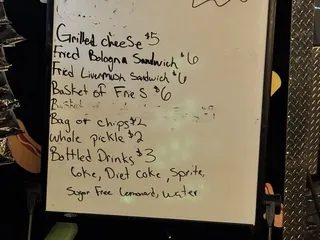 Grilled cheese $5
Fried Bologna Sandwich $6
Fried Livermush Sandwich $6
Basket of Fries $6
Basket of
Bag of chips $2
whole pickle $2
Bottled Drinks $3
Coke, Diet Coke, Sprite,
Sugar Free Lemonard, Water